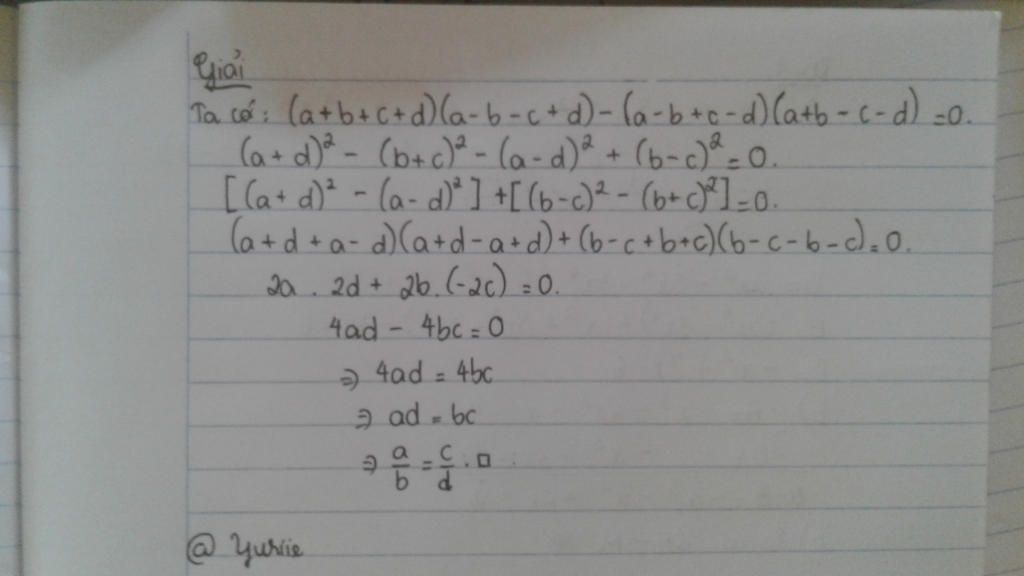 Giải
Ta có: (a+b+c+d)(a-b-c+d)-(a-b+c-d)(a+b-c-d)=0.
(a+d)² - (b+c)² - (a-d)² + (b-c)² = 0.
[(a+d)² - (a-d)²] + [(b-c)² - (b+c)²] = 0.
(a+d+a-d)(a+d-a+d)+(b-c+b+c)(b-c-b-c)=0.
2a . 2d + 2b.(-2c) = 0.
4ad - 4bc = 0
⇒ 4ad = 4bc
⇒ ad = bc
⇒ a/b = c/d . □
@ Yurie